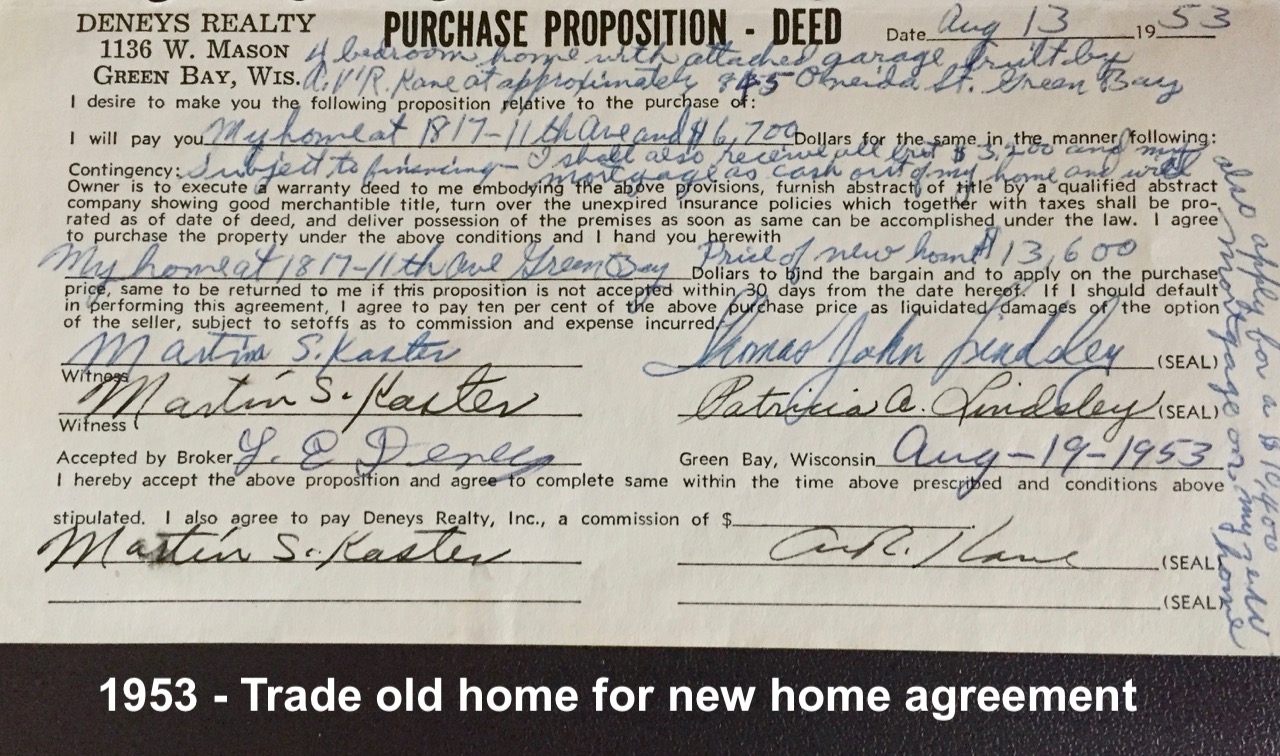 DENEYS REALTY
1136 W. MASON
GREEN BAY, WIS.
PURCHASE PROPOSITION - DEED
Date Aug 13 1953
4 bedroom home with attached garage built by
A.V.R. Kane at approximately 845 Oneida St. Green Bay
I desire to make you the following proposition relative to the purchase of:
I will pay you My home at 1817-11th Ave and $6,700 Dollars for the same in the manner following:
Contingency: Subject to financing - I shall also receive all but $3,200 and my
mortgage as cash out of my home and will
also apply for a $10,400
mortgage on my new
home
Owner is to execute a warranty deed to me embodying the above provisions, furnish abstract of title by a qualified abstract
company showing good merchantible title, turn over the unexpired insurance policies which together with taxes shall be pro-
rated as of date of deed, and deliver possession of the premises as soon as same can be accomplished under the law. I agree
to purchase the property under the above conditions and I hand you herewith
My home at 1817-11th Ave Green Bay Price of new home $13,600
Dollars to bind the bargain and to apply on the purchase
price, same to be returned to me if this proposition is not accepted within 30 days from the date hereof. If I should default
in performing this agreement, I agree to pay ten per cent of the above purchase price as liquidated damages of the option
of the seller, subject to setoffs as to commission and expense incurred.
Martin S. Kaster Thomas John Lindsley (SEAL)
Witness
Martin S. Kaster Patricia A. Lindsley (SEAL)
Witness
Accepted by Broker L. E. Deneys Green Bay, Wisconsin Aug-19-1953
I hereby accept the above proposition and agree to complete same within the time above prescribed and conditions above
stipulated. I also agree to pay Deneys Realty, Inc., a commission of $
Martin S. Kaster A.V.R. Kane (SEAL)
(SEAL)
1953 - Trade old home for new home agreement